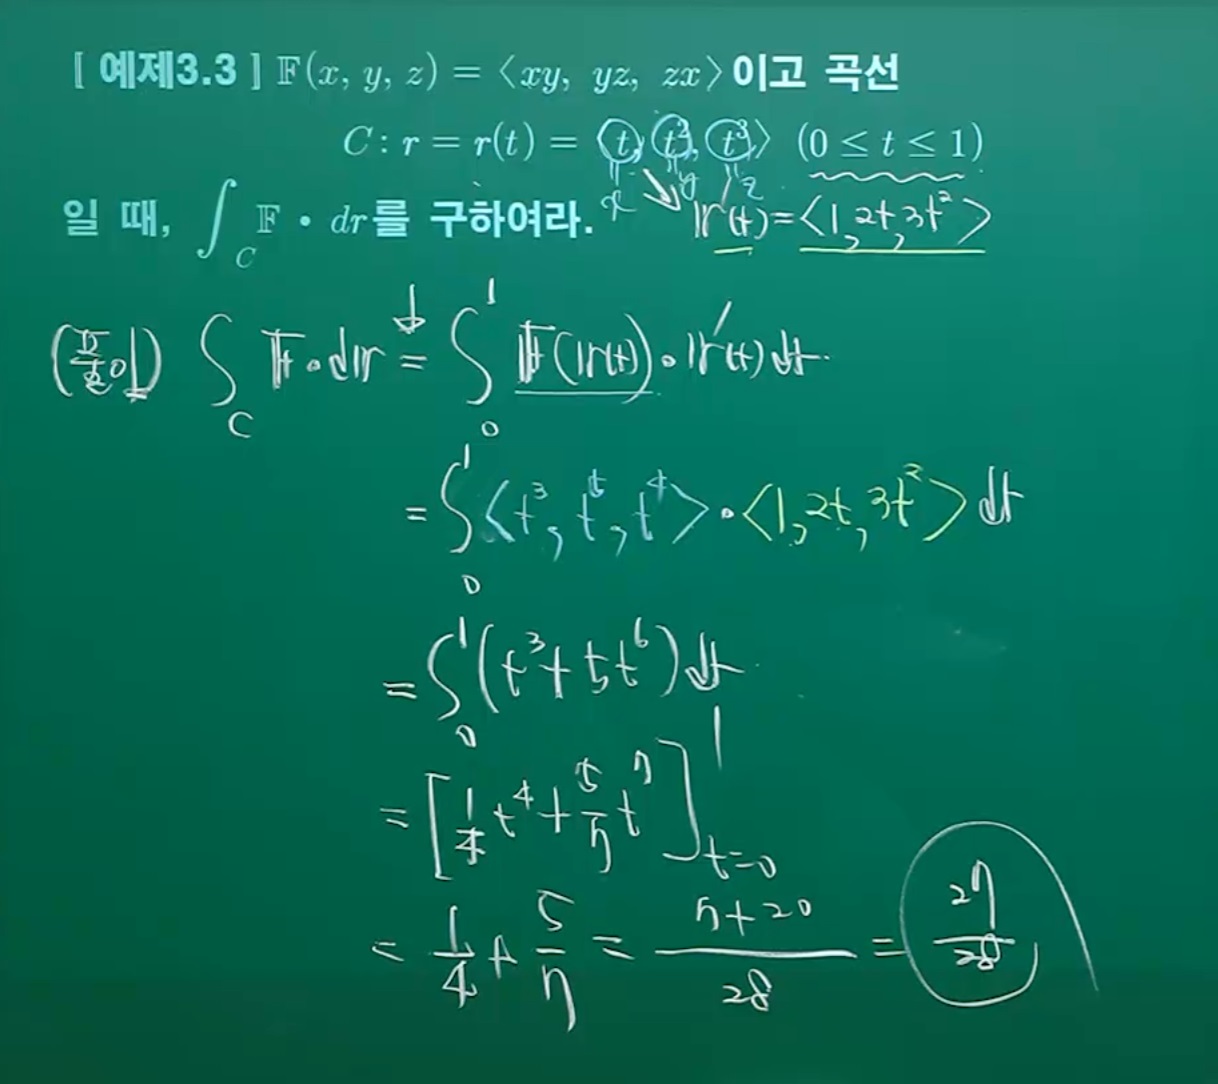 [ 예제3.3 ] 𝔽(x, y, z) = ⟨xy, yz, zx⟩이고 곡선
C : r = r(t) = ⟨t, t², t³⟩ (0 ≤ t ≤ 1)
x y z
일 때, ∫_C 𝔽 • dr를 구하여라. r'(t) = ⟨1, 2t, 3t²⟩
(풀이) ∫_C 𝔽 • dr = ∫_0^1 𝔽(r(t)) • r'(t) dt
= ∫_0^1 ⟨t³, t⁵, t⁴⟩ • ⟨1, 2t, 3t²⟩ dt
= ∫_0^1 (t³ + 5t⁶) dt
= [1/4 t⁴ + 5/7 t⁷]_{t=0}^1
= 1/4 + 5/7 = (7+20)/28 = 27/28